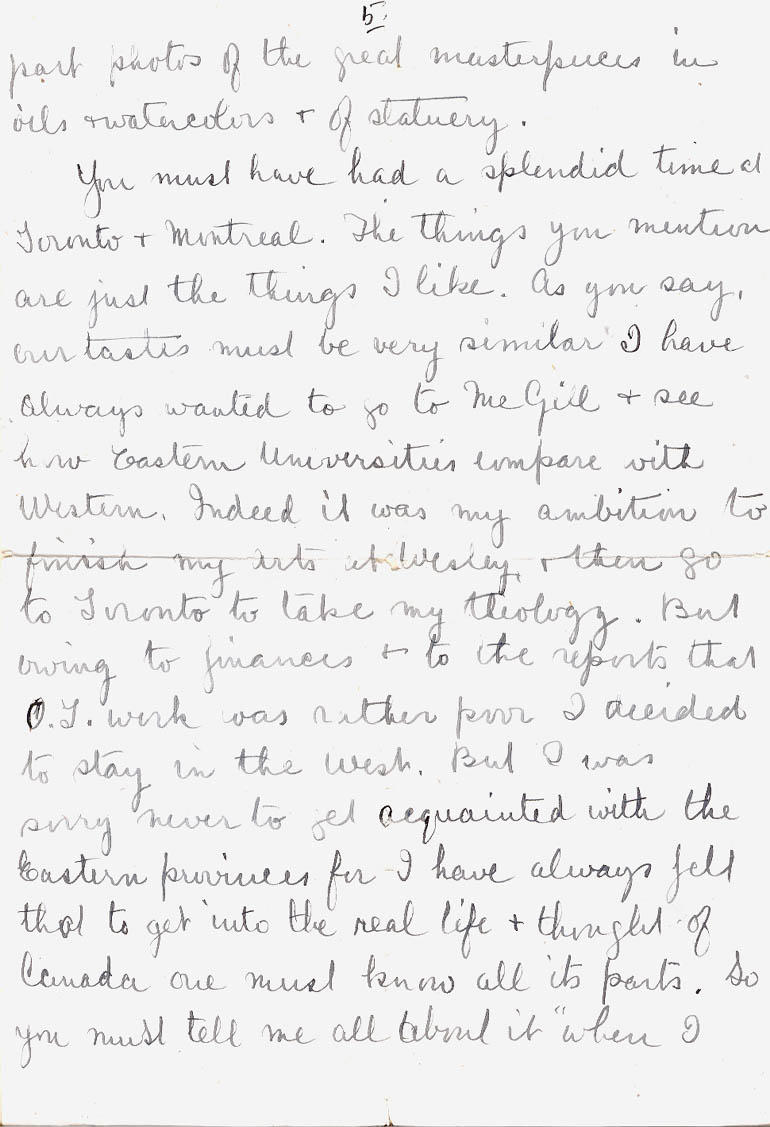 5.
part photos of the great masterpieces in
oils + watercolors + of statuery.
You must have had a splendid time at
Toronto + Montreal. The things you mention
are just the things I like. As you say,
our tastes must be very similar I have
always wanted to go to McGill + see
how Eastern Universities compare with
Western. Indeed it was my ambition to
finish my arts at Wesley, + then go
to Toronto to take my theology. But
owing to finances + to the reports that
O.T. work was rather poor I decided
to stay in the West. But I was
sorry never to get acquainted with the
Eastern provinces for I have always felt
that to get into the real life + thought of
Canada one must know all its parts. So
you must tell me all about it "when I